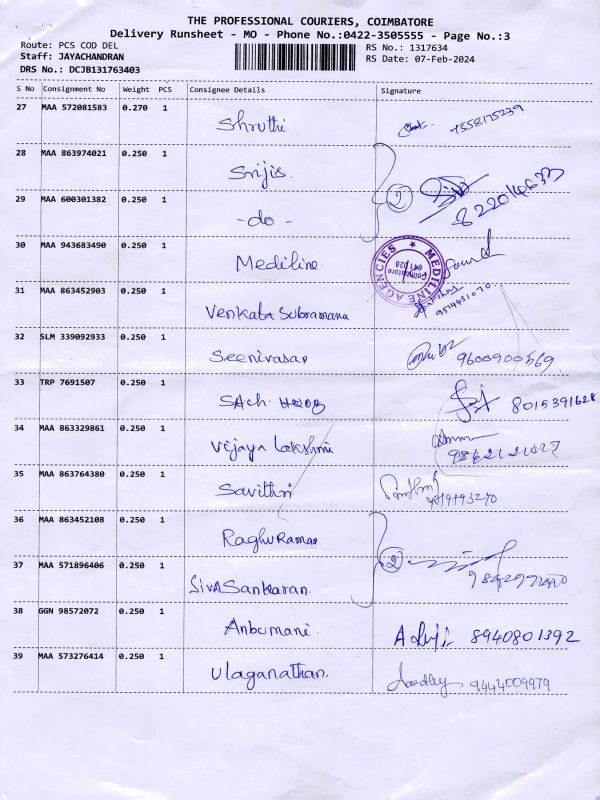 THE PROFESSIONAL COURIERS, COIMBATORE
Delivery Runsheet - MO - Phone No.:0422-3505555 - Page No.:3
Route: PCS COD DEL
RS No.: 1317634
Staff: JAYACHANDRAN
RS Date: 07-Feb-2024
DRS No.: DCJB131763403
S No Consignment No Weight PCS Consignee Details Signature
27 MAA 572081583 0.270 1 Shruthi 7558175239
28 MAA 863974021 0.250 1 Srijis.
29 MAA 600301382 0.250 1 - do - 2
30 MAA 943683490 0.250 1 Mediline
MEDILINE AGENCIES ★ Coimbatore 641 028
31 MAA 863452903 0.250 1 Venkata Subramanu
32 SLM 339092933 0.250 1 Seenivasan 9600900569
33 TRP 7691507 0.250 1 SAch 8015391628
34 MAA 863329861 0.250 1 Vijaya Lakshmi
35 MAA 863764380 0.250 1 Savithri
36 MAA 863452108 0.250 1 Raghu Raman
37 MAA 571896406 0.250 1 SivASankaran. 2
38 GGN 98572072 0.250 1 Anbumani. 8940801392
39 MAA 573276414 0.250 1 Ulaganathan. 9444009979